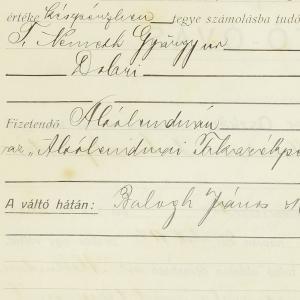 értéke készpénzben tegye számolásba tudó
T. Németh György ur
Dobri
Fizetendő Alsólendván
az „Alsólendvai Takarékpé
A váltó hátán: Balogh János